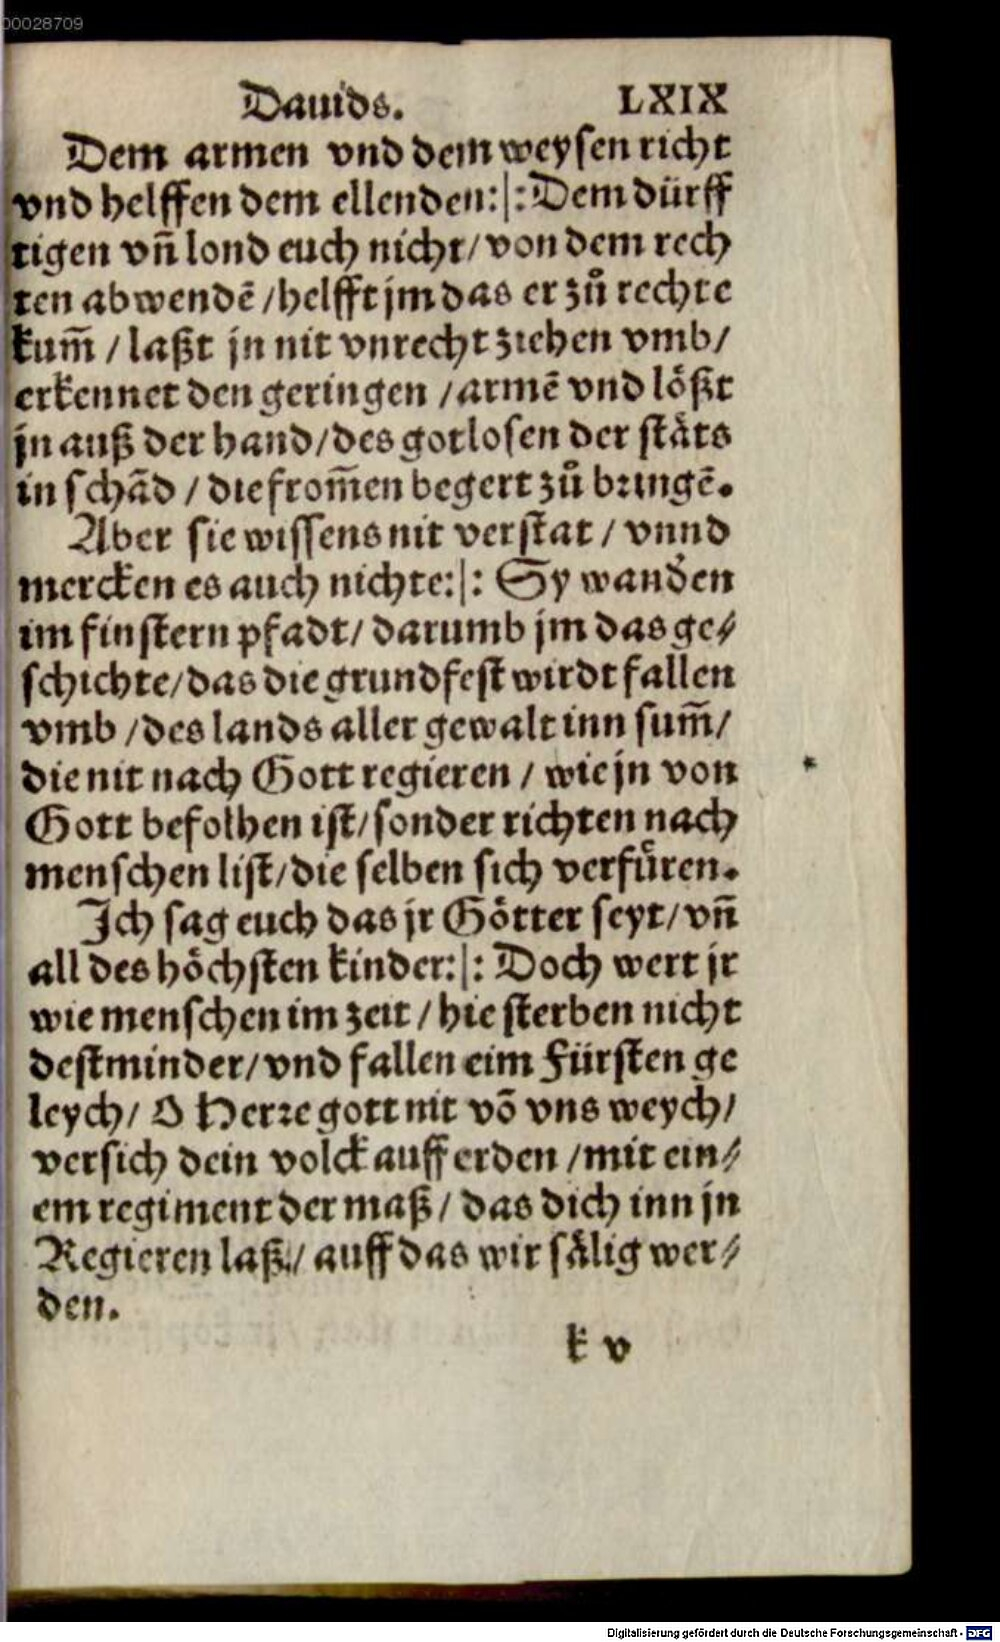 00028709
Dauids. LXIX
Dem armen vnd dem weysen richt
vnd helffen dem ellenden:|:Dem dürff
tigen vñ lond euch nicht/von dem rech
ten abwendẽ /helfft jm das er zů rechte
kum̃ / laßt jn nit vnrecht ziehen vmb/
erkennet den geringen /armẽ vnd lößt
jn auß der hand/des gotlosen der stäts
in schãd / die from̃en begert zů bringẽ.
Aber sie wissens nit verstat / vnnd
mercken es auch nichte:|: Sy wandẽn
im finstern pfadt/ darumb jm das ge⸗
schichte/das die grundfest wirdt fallen
vmb /des lands aller gewalt inn sum̃/
die nit nach Gott regieren / wie jn von
Gott befolhen ist/sonder richten nach
menschen list/die selben sich verfüren.
Ich sag euch das jr Götter seyt/vñ
all des höchsten kinder:|: Doch wert jr
wie menschen im zeit / hie sterben nicht
destminder/vnd fallen eim Fürsten ge
leych/ O Herre gott nit võ vns weych/
versich dein volck auff erden /mit ein⸗
em regiment der maß/ das dich inn jn
Regieren laß./ auff das wir sälig wer⸗
den.
k v
Digitalisierung gefördert durch die Deutsche Forschungsgemeinschaft - DFG